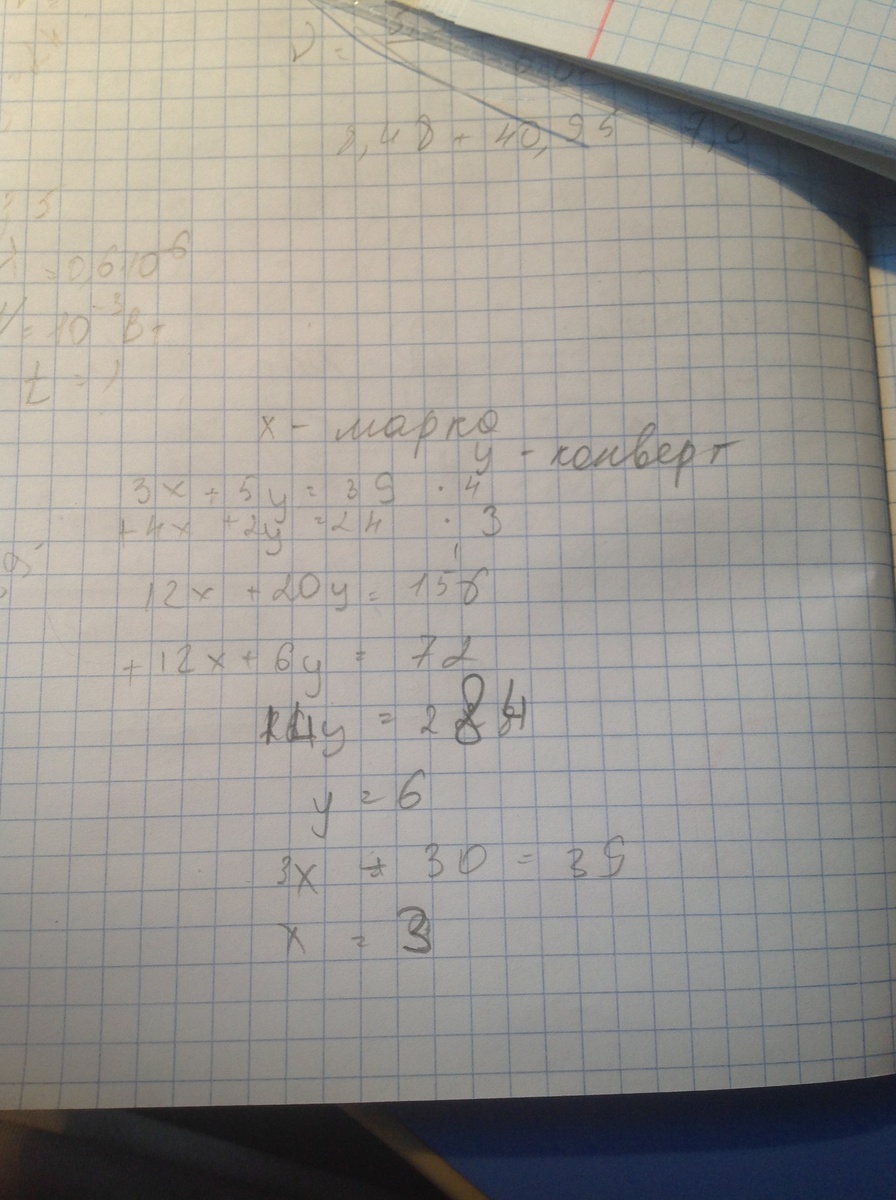 8,48 + 40,95 7,0
= 0,6·10⁻⁶
= 10⁻³ Вт
t = 1
x - марка
y - конверт
3x + 5y = 39 · 4
+4x + 2y = 24 · 3
12x + 20y = 156
+12x + 6y = 72
14y = 84
y = 6
3x + 30 = 39
x = 3